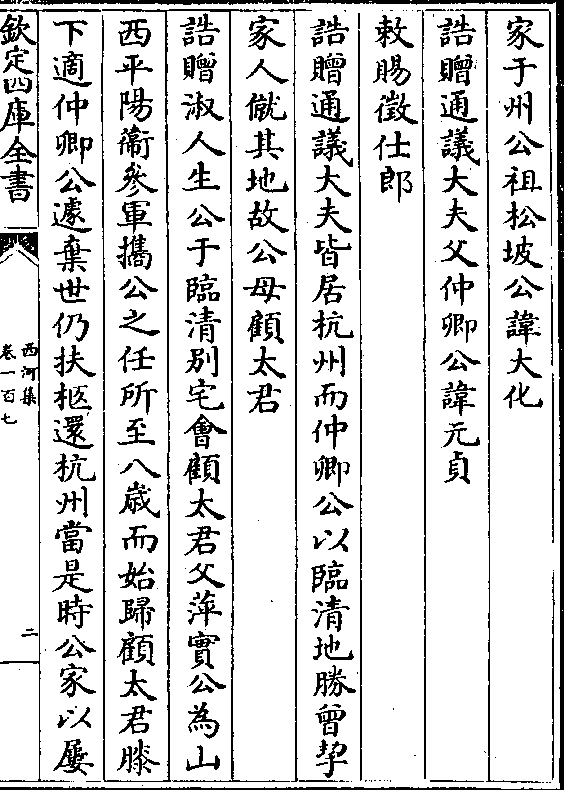 家于州公祖松坡公諱大化
誥贈通議大夫父仲卿公諱元貞
敕賜徵仕郎
誥贈通議大夫皆居杭州而仲卿公以臨清地勝曾挈
家人僦其地故公母顧太君
誥贈淑人生公于臨清別宅會顧太君父萍實公為山
西平陽衛參軍攜公之任所至八歲而始歸顧太君膝
下適仲卿公遽棄世仍扶柩還杭州當是時公家以屢
欽定四庫全書
西河集
卷一百七
二